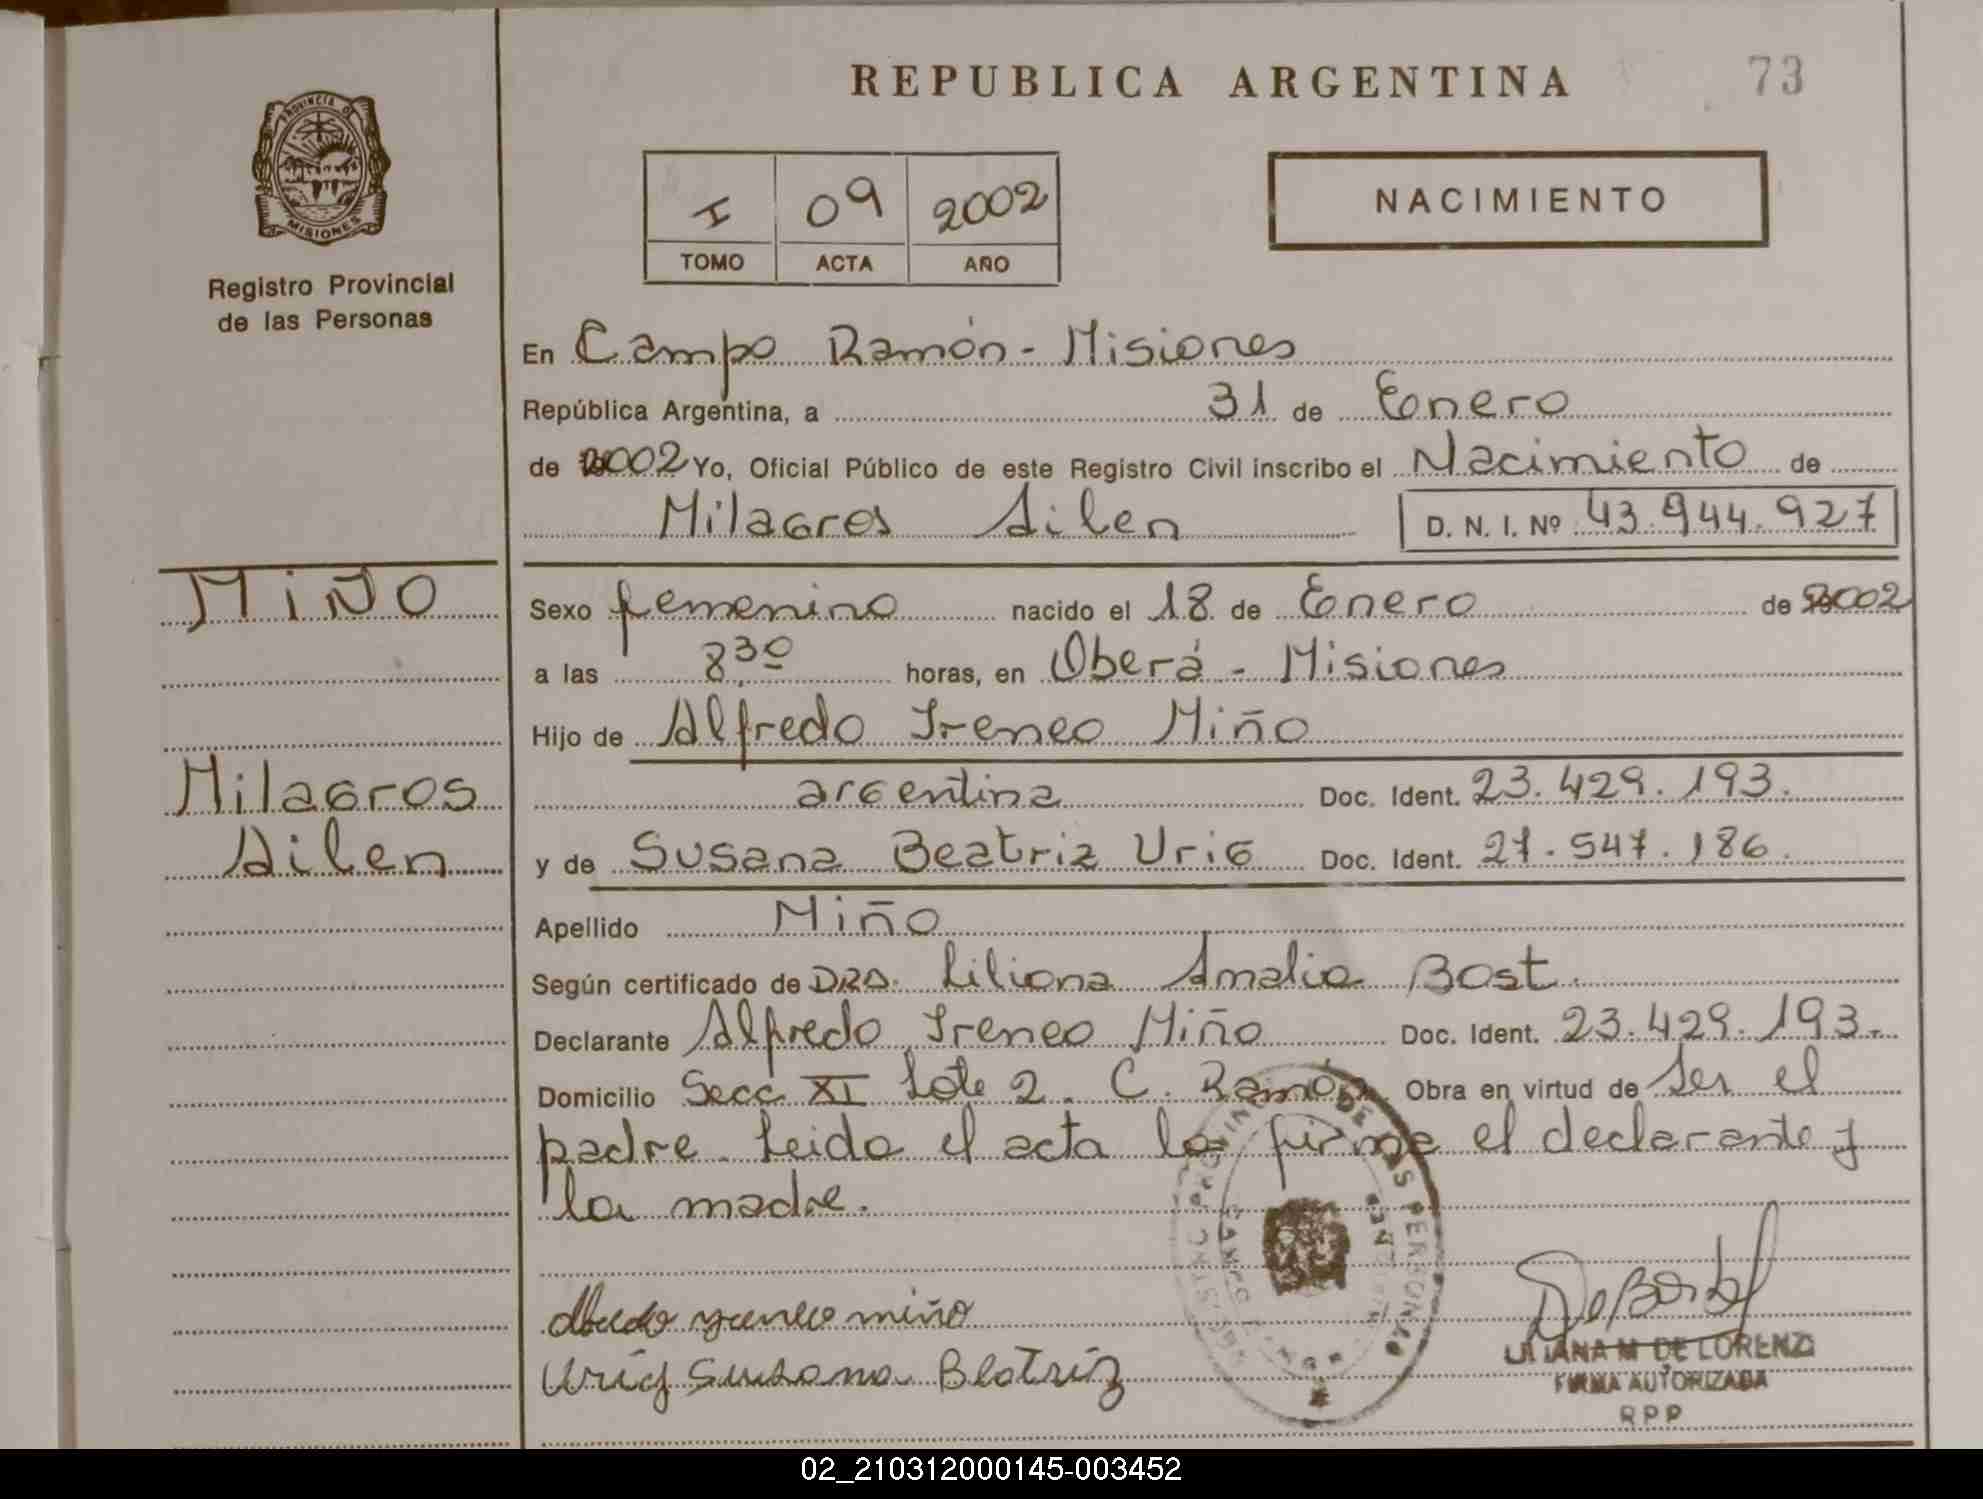 REPUBLICA ARGENTINA
73
PROVINCIA DE
MISIONES
Registro Provincial
de las Personas
I 09 2002
TOMO ACTA AÑO
NACIMIENTO
En Campo Ramón - Misiones
República Argentina, a 31 de Enero
de 2002 Yo, Oficial Público de este Registro Civil inscribo el Nacimiento de
Milagros Ailen D. N. I. Nº 43.944.927
MIÑO
Milagros
Ailen
Sexo femenino nacido el 18 de Enero de 2002
a las 8,30 horas, en Oberá - Misiones
Hijo de Alfredo Ireneo Miño
argentina Doc. Ident. 23.429.193.
y de Susana Beatriz Urig Doc. Ident. 27.547.186.
Apellido Miño
Según certificado de DRA. Liliana Amalia Bast.
Declarante Alfredo Ireneo Miño Doc. Ident. 23.429.193.
Domicilio Secc XI Lote 2. C. Ramón. Obra en virtud de ser el
padre. Leida el acta la firma el declarante y
la madre.
yreneo miño
Urig Susana Beatriz
LILIANA M DE LORENZI
FIRMA AUTORIZADA
RPP
02_210312000145-003452